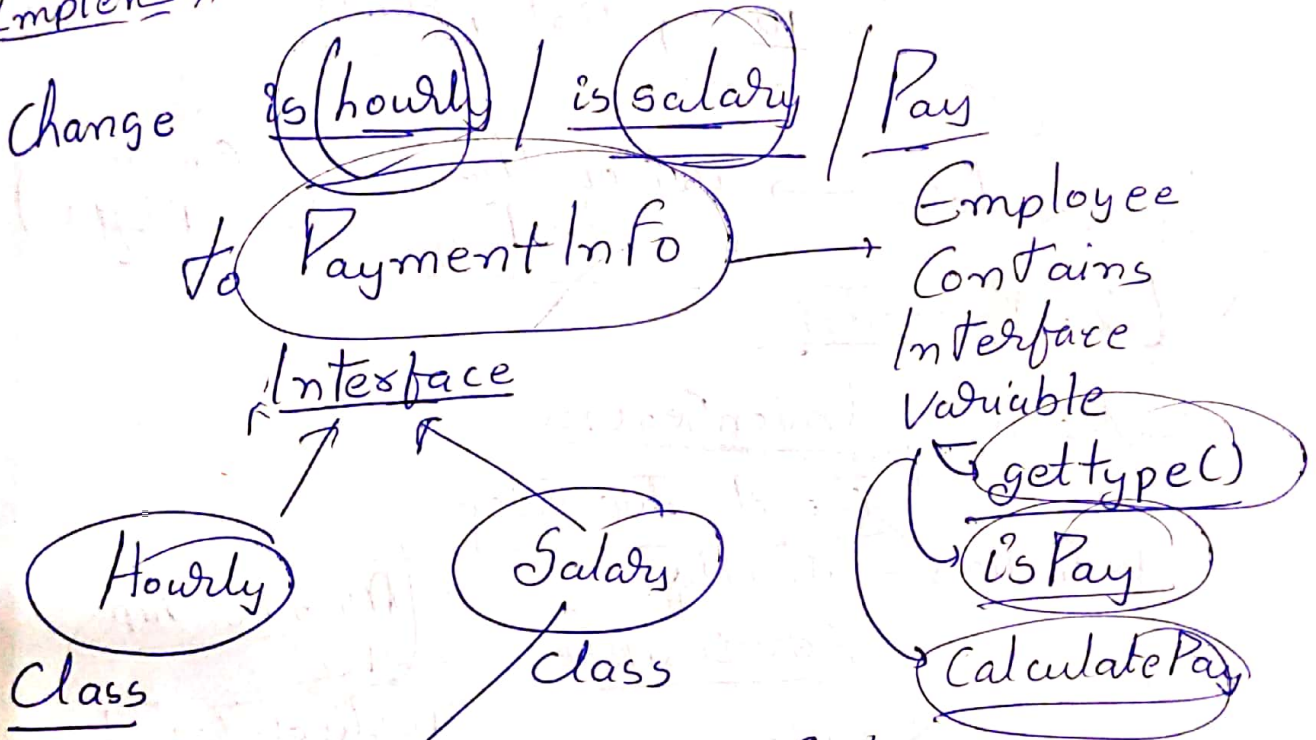 Change is hourly / is salary / Pay
to PaymentInfo
Employee
Contains
Interface
variable
Interface
gettype()
isPay
CalculatePay
Hourly
Class
Salary
Class